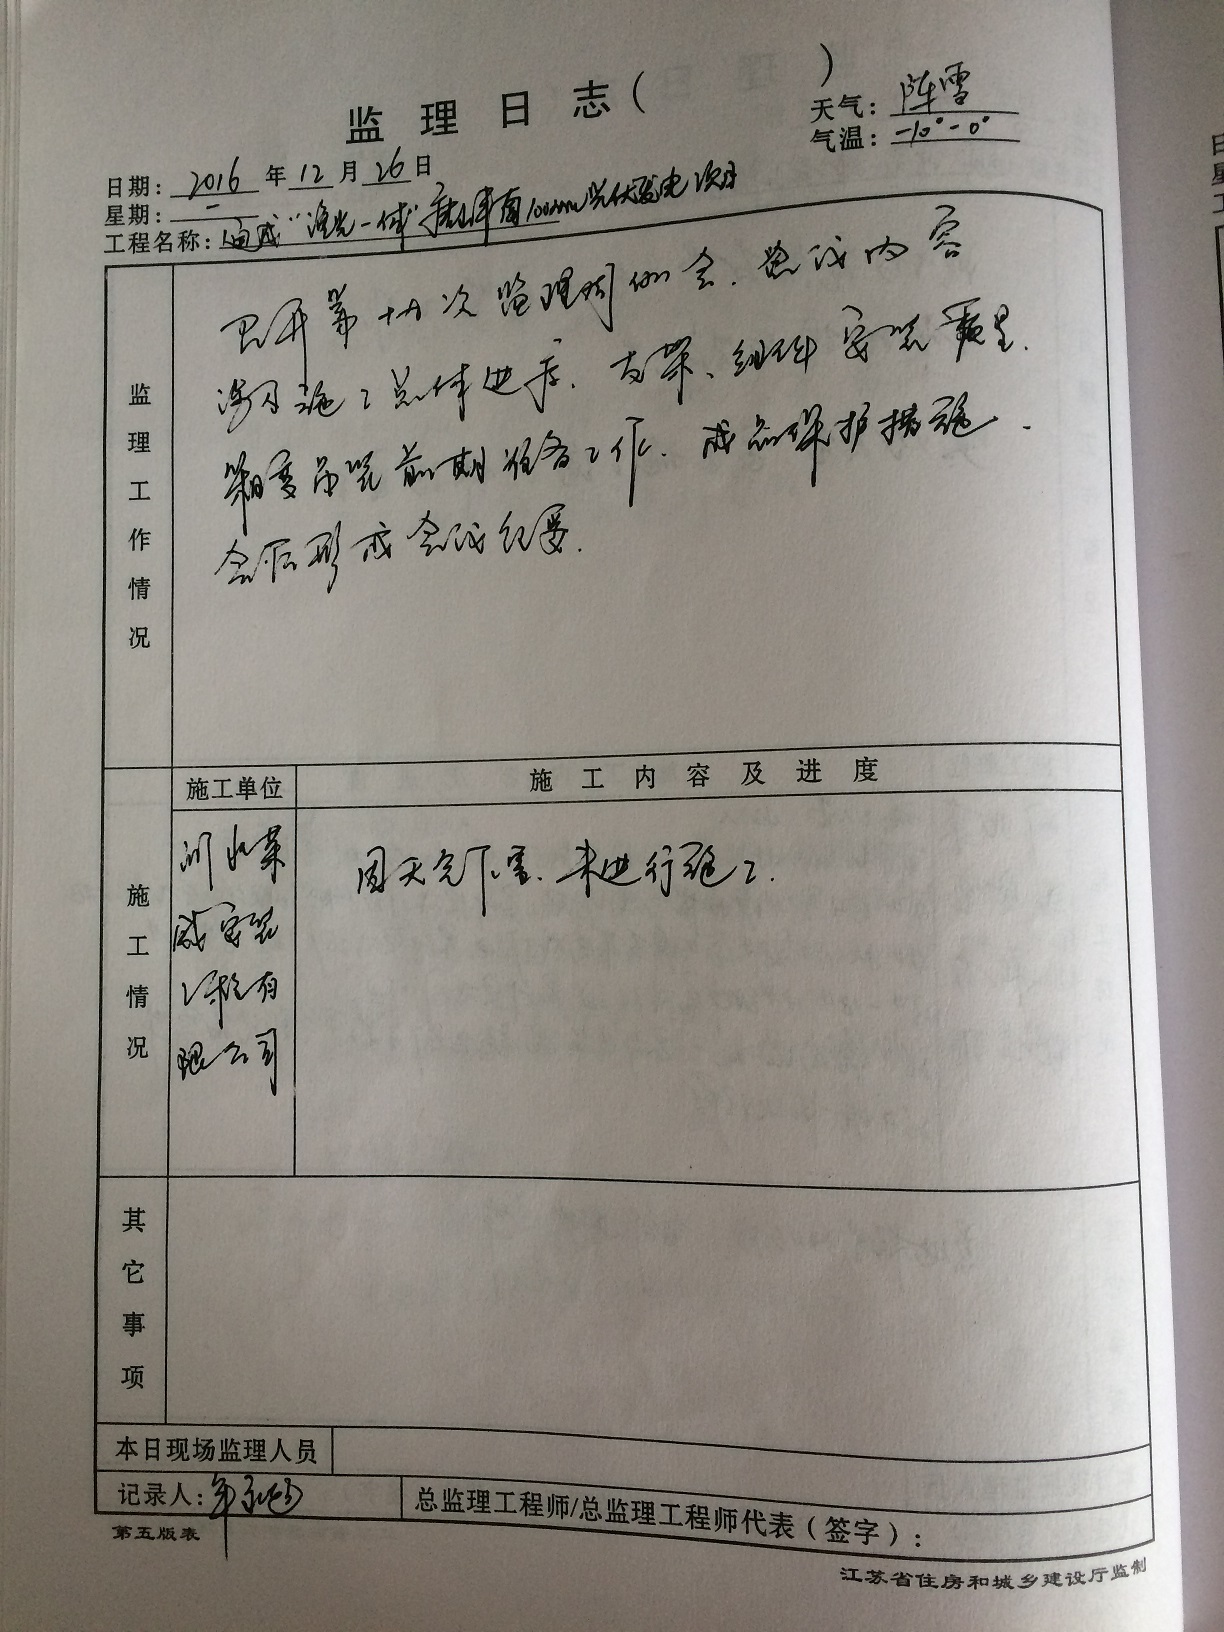 监理日志( )
天气: 阵雪
气温: -10°-0°
日期: 2016 年 12 月 26 日
星期: 一
工程名称: 通威"渔光一体" 100MW光伏发电项目
监理工作情况
召开第十八次监理周例会.会议内容
涉及施工总体进度.支架、组件安装质量.
箱变吊装前期准备工作.成品保护措施.
会后形成会议纪要.
施工单位
施工内容及进度
施工情况
安装
工程有
限公司
因天气下雪.未进行施工.
其它事项
本日现场监理人员
记录人:
总监理工程师/总监理工程师代表(签字):
第五版表
江苏省住房和城乡建设厅监制